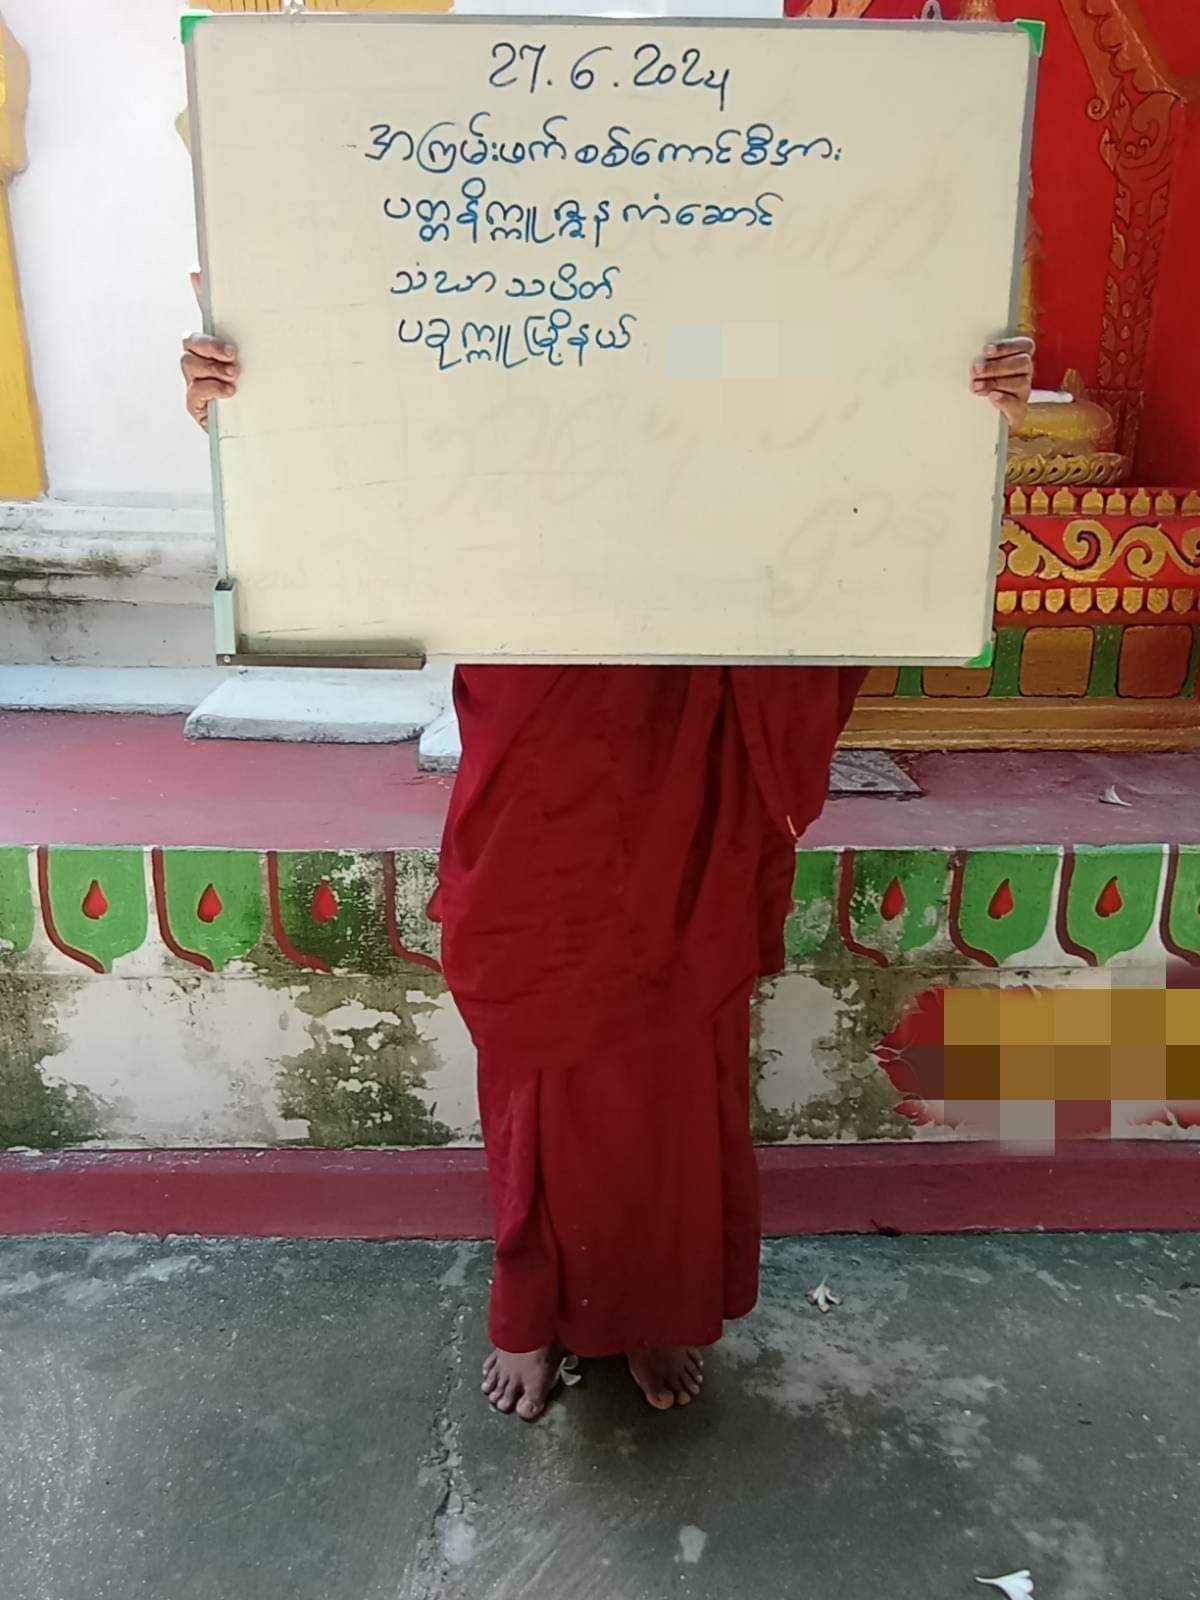 27.6.2024
အကြမ်းဖက်စစ်ကောင်စီအား
ပတ္တနိက္ကုဇ္ဇနကံဆောင်
သံဃာသပိတ်
ပခုက္ကူမြို့နယ်